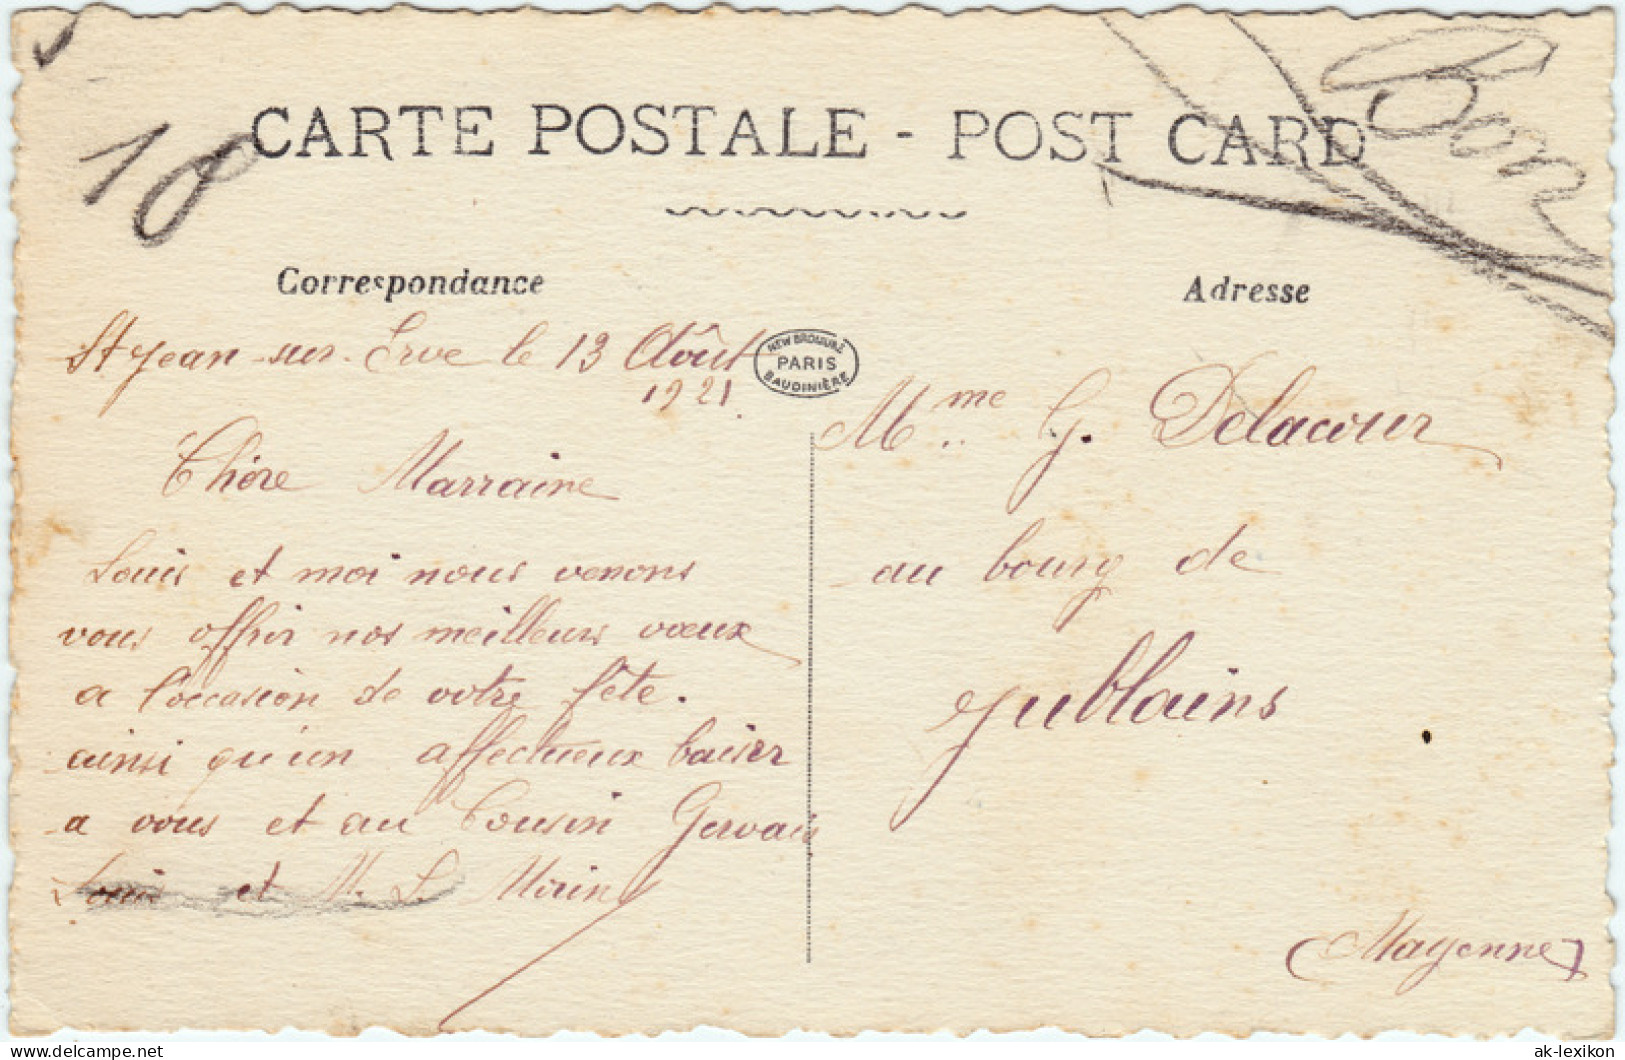 10
Bon
CARTE POSTALE - POST CARD
Correspondance
Adresse
St Jean-sur-Erve le 13 Août
1921
NEW BROMURE
PARIS
BAUDINIÈRE
Chère Marraine
Louis et moi nous venons
vous offrir nos meilleurs vœux
a l'occasion de votre fête.
ainsi qu'un affectueux baiser
a vous et au Cousin Gervais
Louis et M. L. Morin
Mme G. Delacour
au bourg de
Jublains
(Mayenne)
delcampe.net
ak-lexikon